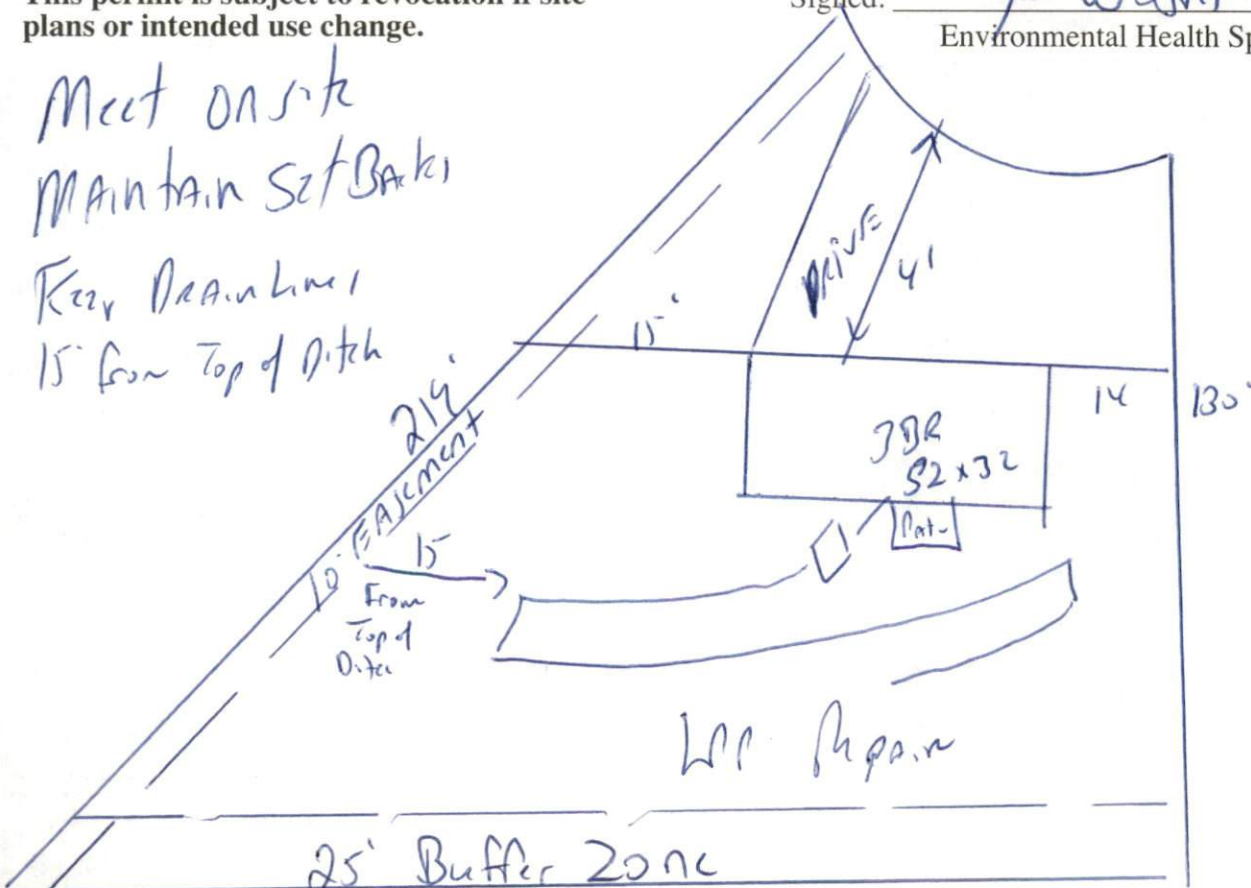 This permit is subject to revocation if site
plans or intended use change.
Signed:
Environmental Health Sp
Meet onsite
Maintain SetBacks
Keep Drain Lines
15' from Top of Ditch
DRIVE
41
15'
14
130'
219'
3BR
52 x 32
Easement
10'
15
From
Top of
Ditch
Repair
25' Buffer Zone